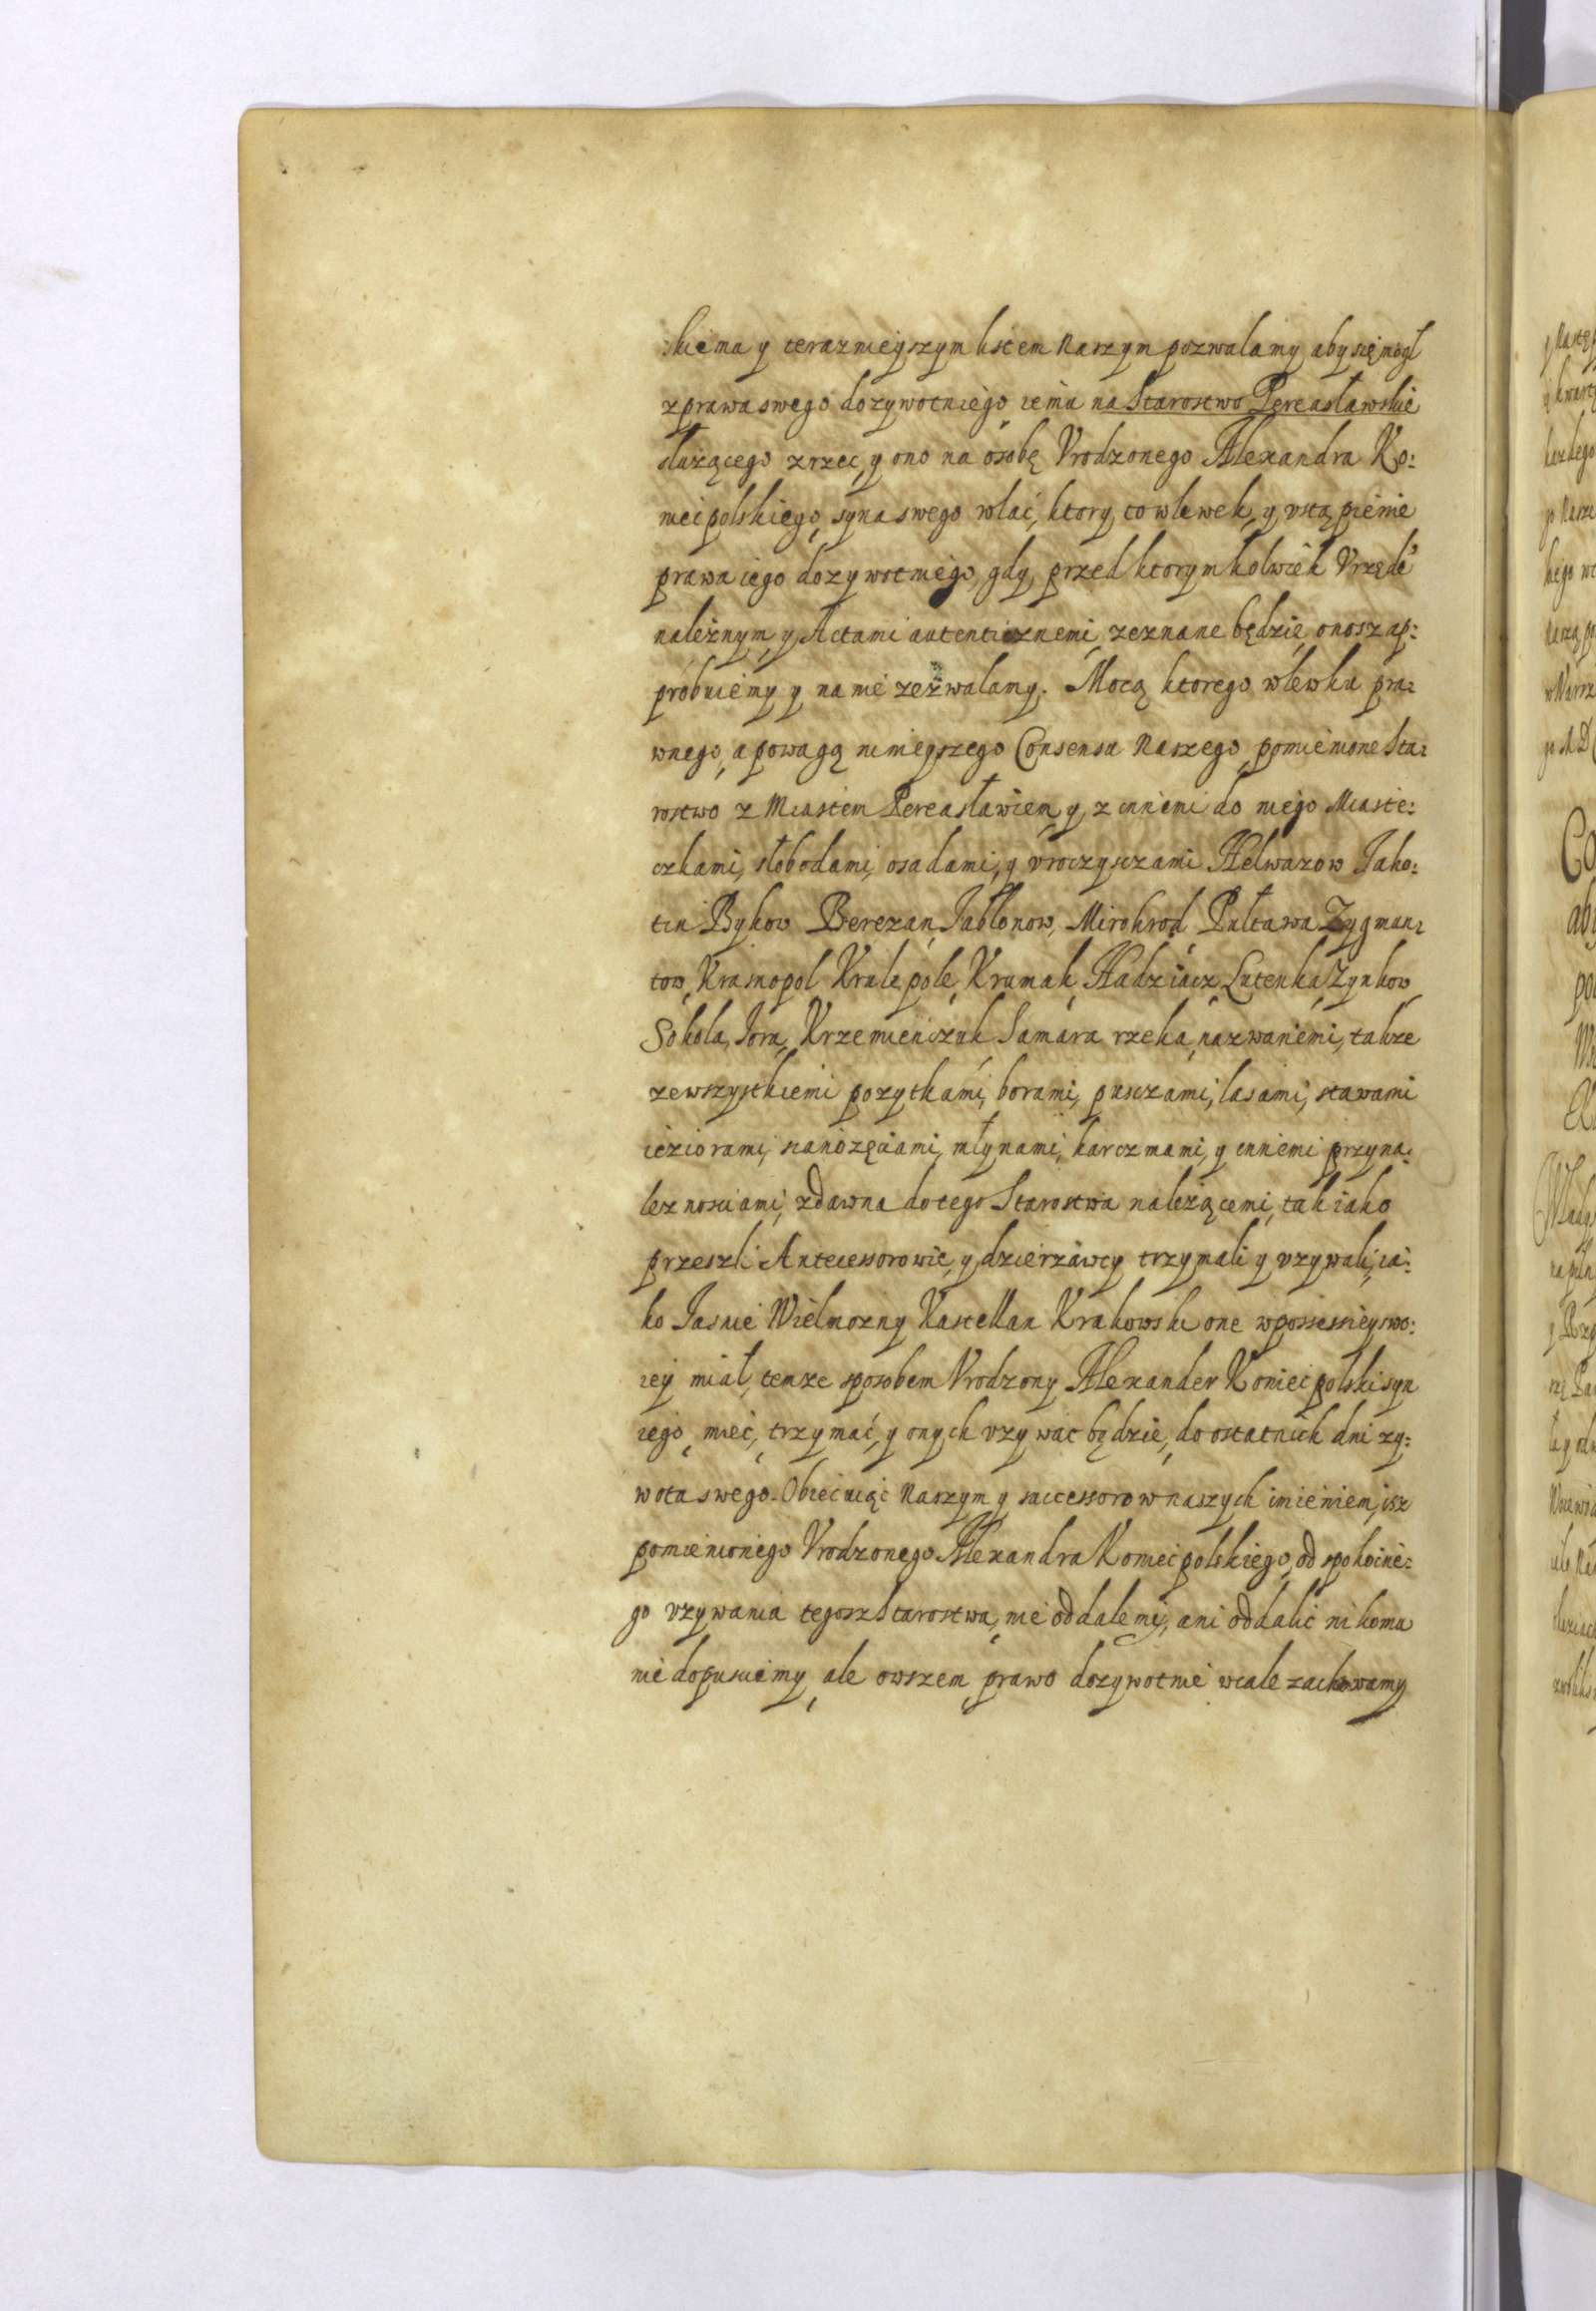 skiemu y teraznieyszym listem Naszym pozwalamy aby się mogł
z prawa swego dozywotniego iemu na Starostwo Pereasławskie
służącego zrzec, y ono na osobę Vrodzonego Alexandra Ko:
niecpolskiego syna swego wlać, ktory to wlewek, y vstąpienie
prawa iego dozywotniego, gdy przed ktorymkolwiek Vrzędē
należnym, y Actami autenticznemi zeznane będzie, onosz ap:
probuiemy y na nie zezwalamy. Mocą ktorego wlewku pra:
wnego, a powagą ninieyszego Consensu Naszego pomienione Sta:
rostwo z Miastem Pereasławiem y z innemi do niego Miaste:
czkami, słobodami, osadami, y vroczysczami Helmazow Jaho:
tin Bykow Berezan, Jabłonow, Mirohrod, Pułtawa Zygman:
tow, Krasnopol Krulepole, Krumak, Hadziacz Lutenka Zynkow
Sokola, Jora, Krzemieńczuk Samara rzeka, nazwaniemi, także
ze wszystkiemi pozytkami, borami, pusczami, lasami, stawami
ieziorami, sianożęciami, młynami, karczmami, y innemi przyna:
leznosciami, zdawna do tego Starostwa należącemi, tak iako
przeszli Antecessorowie, y dzierżawcy trzymali y vzywali, ia:
ko Jasnie Wielmozny Kasztellan Krakowski one w possessiey swo:
iey miał, temze sposobem Vrodzony Alexander Koniecpolski syn
iego mieć, trzymać, y onych vzywac będzie, do ostatnich dni zy:
wota swego. Obiecuiąc Naszym y successorow naszych imieniem, isz
pomienionego Vrodzonego Alexandra Koniecpolskiego, od spokoine:
go vzywania tegosz Starostwa, nie oddalemy, ani oddalić nikomu
nie dopusciemy, ale owszem prawo dozywotnie wcale zachowamy